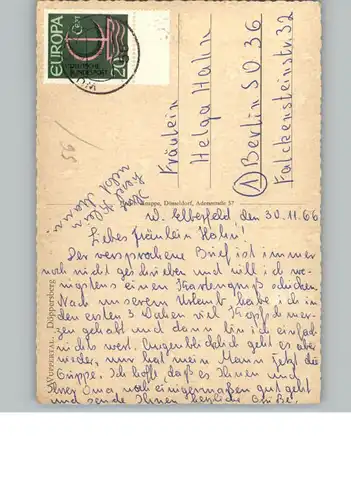 EUROPA
CEPT
DEUTSCHE BUNDESPOST
20
56/
Fräulein
Helga Hahn
1 Berlin SO 36
Falckensteinstr 32
Düsseldorf, Adersstraße 37
WUPPERTAL, Döppersberg
W. Elberfeld den 30.11.66
Liebes Fräulein Hahn!
Der versprochene Brief ist immer
noch nicht geschrieben und will ich we-
nigstens einen Kartengruß schicken.
Nach unserem Urlaub habe ich in
den ersten 3 Wochen viel Kopfschmer-
zen gehabt und dann bin ich einfach
nichts wert. Augenblicklich geht es aber
wieder, nur hat mein Mann jetzt die
Grippe. Ich hoffe daß es Ihnen und
Ihrer Oma noch einigermaßen gut geht
und sende Ihnen herzliche Grüße.
und Mann